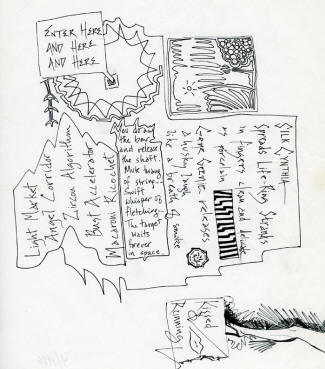 ENTER HERE
AND HERE
AND HERE
SILK SYNTHIA
SPREADS LIFE-RING STRANDS
in fingers clean and delicate
as porcelain
releases
a husky laugh
like a breath of smoke
You draw
the bow
and release
the shaft.
Mute twang
of string.
Swift
whisper of
fletching.
The target
waits
forever
in space.
Light Market
Angel Corridor
Zircon Algorithm
Burst Accelerator
Macaroni Ricochet
Kissed
Running